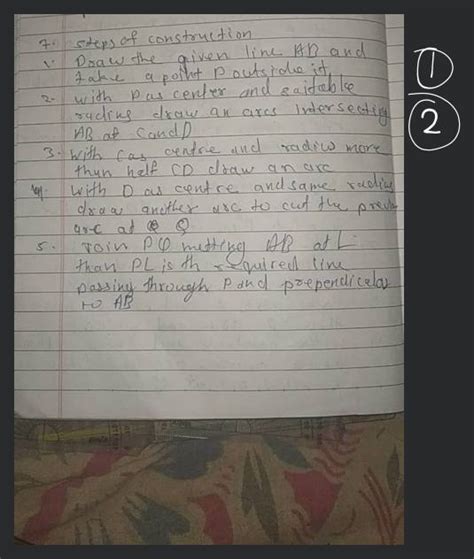 7. steps of construction
1. Draw the given line AB and
take a point P outside it
2. with P as center and suitable
radius draw an arcs Intersecting
AB at C and D
3. With C as centre and radius more
than half CD draw an arc
4. With D as centre and same radius
draw another arc to cut the
arc at Q
5. Join PQ metting AB at L
than PL is th required line
passing through P and prependicular
to AB
1
2